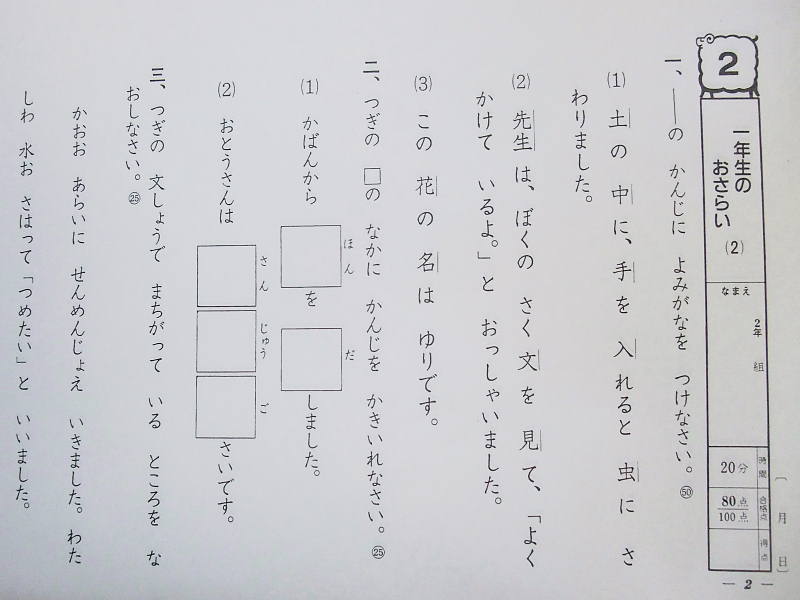 2
一年生の
おさらい
(2)
なまえ
2年 組
時間
20分
合格点
80点
100点
得点
〔 月 日〕
一、――の かんじに よみがなを つけなさい。㊿
(1) 土の 中に、手を 入れると 虫に さ
わりました。
(2) 先生は、ぼくの さく文を 見て、「よく
かけて いるよ。」と おっしゃいました。
(3) この 花の 名は ゆりです。
二、つぎの □の なかに かんじを かきいれなさい。㉕
(1) かばんから □を □しました。
ほん だ
(2) おとうさんは □□□さいです。
さん じゅう ご
三、つぎの 文しょうで まちがって いる ところを な
おしなさい。㉕
かおお あらいに せんめんじょえ いきました。わた
しわ 水お さはって「つめたい」と いいました。
— 2 —